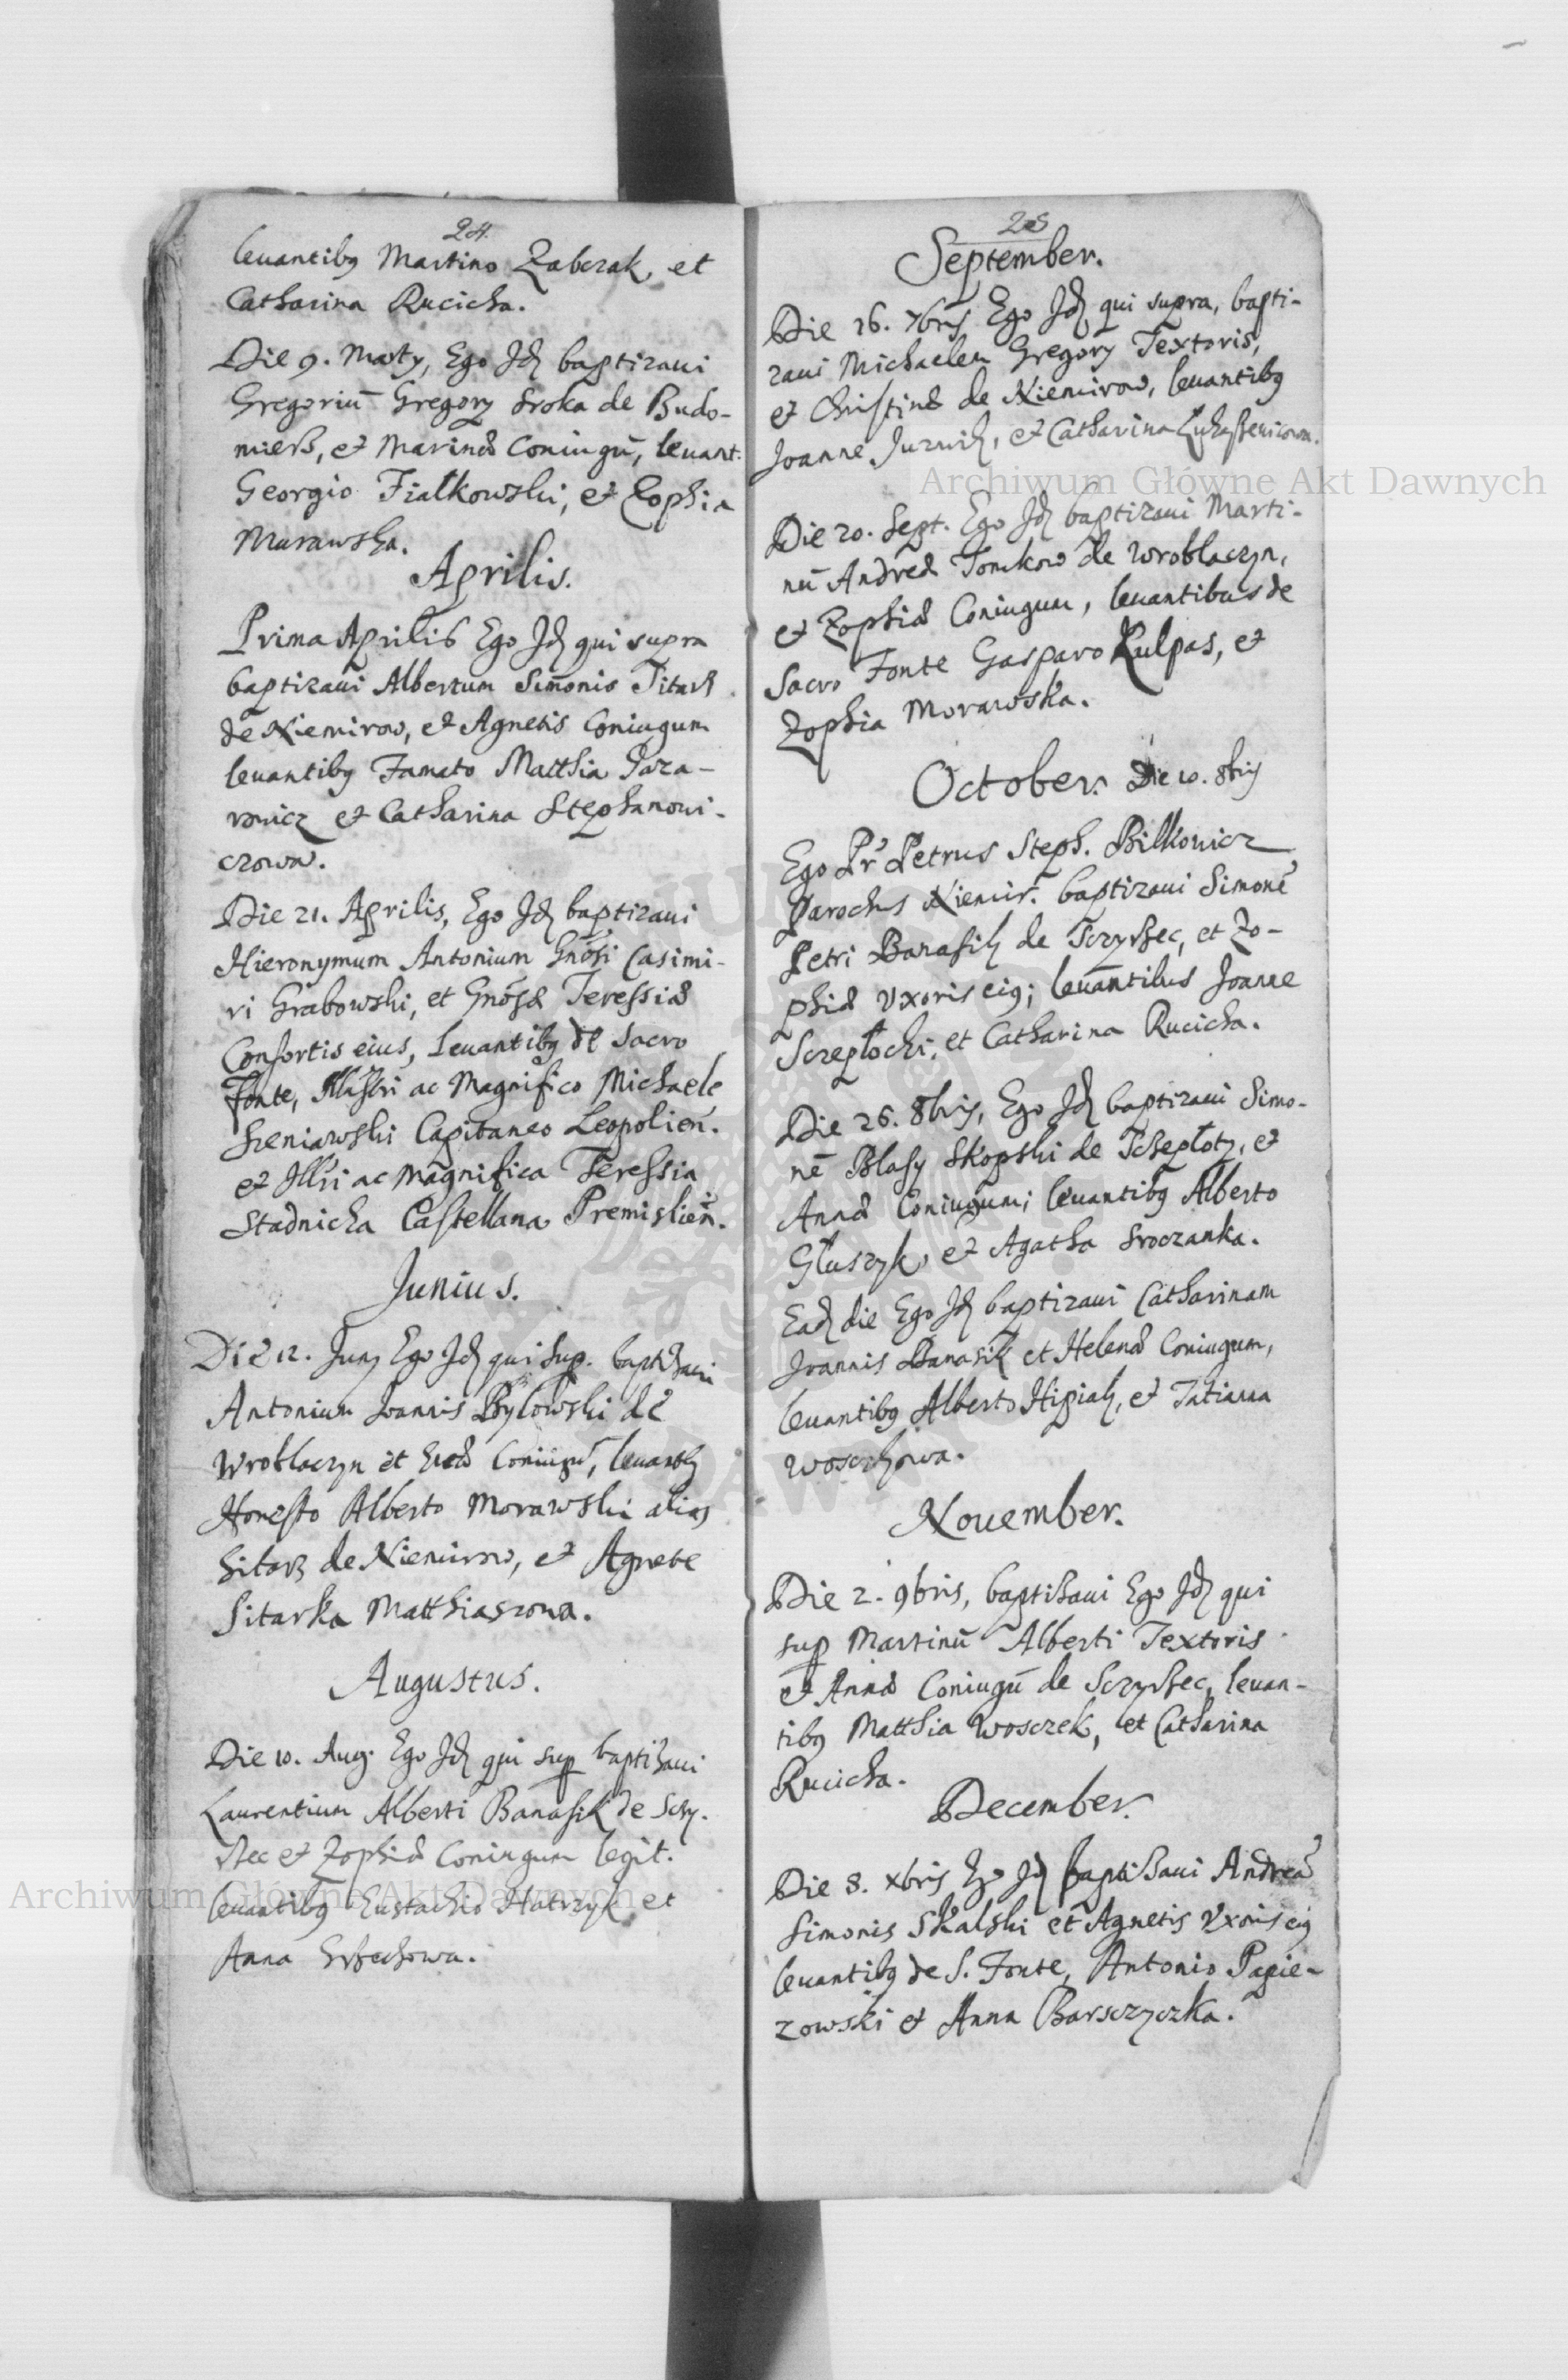 24.
leuantibꝫ Martino Zabczak, et
Catharina Rucicka.
Die 9. Marty, Ego Jd baptizaui
Gregoriū Gregory Sroka de Budo-
mierß, et Marinæ Coniugū, leuant.
Georgio Fialkowski, et Zophia
Murawska.
Aprilis.
Prima Aprilis Ego Jd qui supra
baptizaui Albertum Simonis Titarz
de Niemirow, et Agnetis Coniugum
leuantibꝫ Famato Matthia Jaza-
rowicz et Catharina Stephanowi-
czowa.
Die 21. Aprilis, Ego Jd baptizaui
Hieronymum Antonium Gnōsi Casimi-
ri Grabowski, et Gnōsæ Teressiæ
Consortis eius, leuantibꝫ de Sacro
Fonte, Illustri ac Magnifico Michaele
Sieniawski Capitaneo Leopolien.
et Illri ac Magnifica Teressia
Stadnicka Castellana Premislien.
Junius.
Die 12. Juny Ego Jd qui sup. baptisaui
Antonium Joannis Bylowski de
Wroblaczyn et Euæ Coniugū, leuantibꝫ
Honesto Alberto Morawski alias
Sitarz de Niemirow, et Agnete
Sitarka Matthiaszowa.
Augustus.
Die 10. Aug. Ego Jd qui sup baptisaui
Laurentium Alberti Banasik de Sczy-
rzec et Zophiæ Coniugum legit.
leuantibꝫ Eustachio Hatrzyk et
Anna
25
September.
Die 16. 7bris Ego Jd qui supra, bapti-
zaui Michaelem Gregory Textoris,
et Christinæ de Niemirow, leuantibꝫ
Joanne Jurwik, et Catharina
Die 20. Sept. Ego Jd baptizaui Marti-
nū Andreæ Tomkow de Wroblaczyn,
et Zophiæ Coniugum, leuantibus de
Sacro Fonte Gasparo Kulpas, et
Zophia Morawska.
October. Die 10. 8bris
Ego Pr Petrus Steph. Bilkowicz
Parochus Niemir. baptizaui Simonē
Petri Banasik de Sczyrzec, et Zo-
phiæ vxoris eiꝫ; leuantibus Joanne
Sczeplocki, et Catharina Rucicka.
Die 26. 8bris, Ego Jd baptizaui Simo-
nē Blasy Skopski de Tczeploty, et
Annæ Coniugum; leuantibꝫ Alberto
Gluszyk, et Agatha Sroczanka.
Ead die Ego Jd baptizaui Catharinam
Joannis Banasik et Helenæ Coniugum,
leuantibꝫ Alberto Hipiak, et Tatiana
Wosczkowa.
Nouember.
Die 2. 9bris, baptisaui Ego Jd qui
sup Martinū Alberti Textoris
et Annæ Coniugū de Sczyrzec, leuan-
tibꝫ Matthia Wosczek, et Catharina
Rucicka.
December.
Die 8. xbris Ego Jd baptisaui Andreā
Simonis Skalski et Agnetis Vxoris eiꝫ
leuantibꝫ de S. Fonte, Antonio Papie-
zowski et Anna Barsczyczka.
Archiwum Główne Akt Dawnych
Archiwum Główne Akt Dawnych